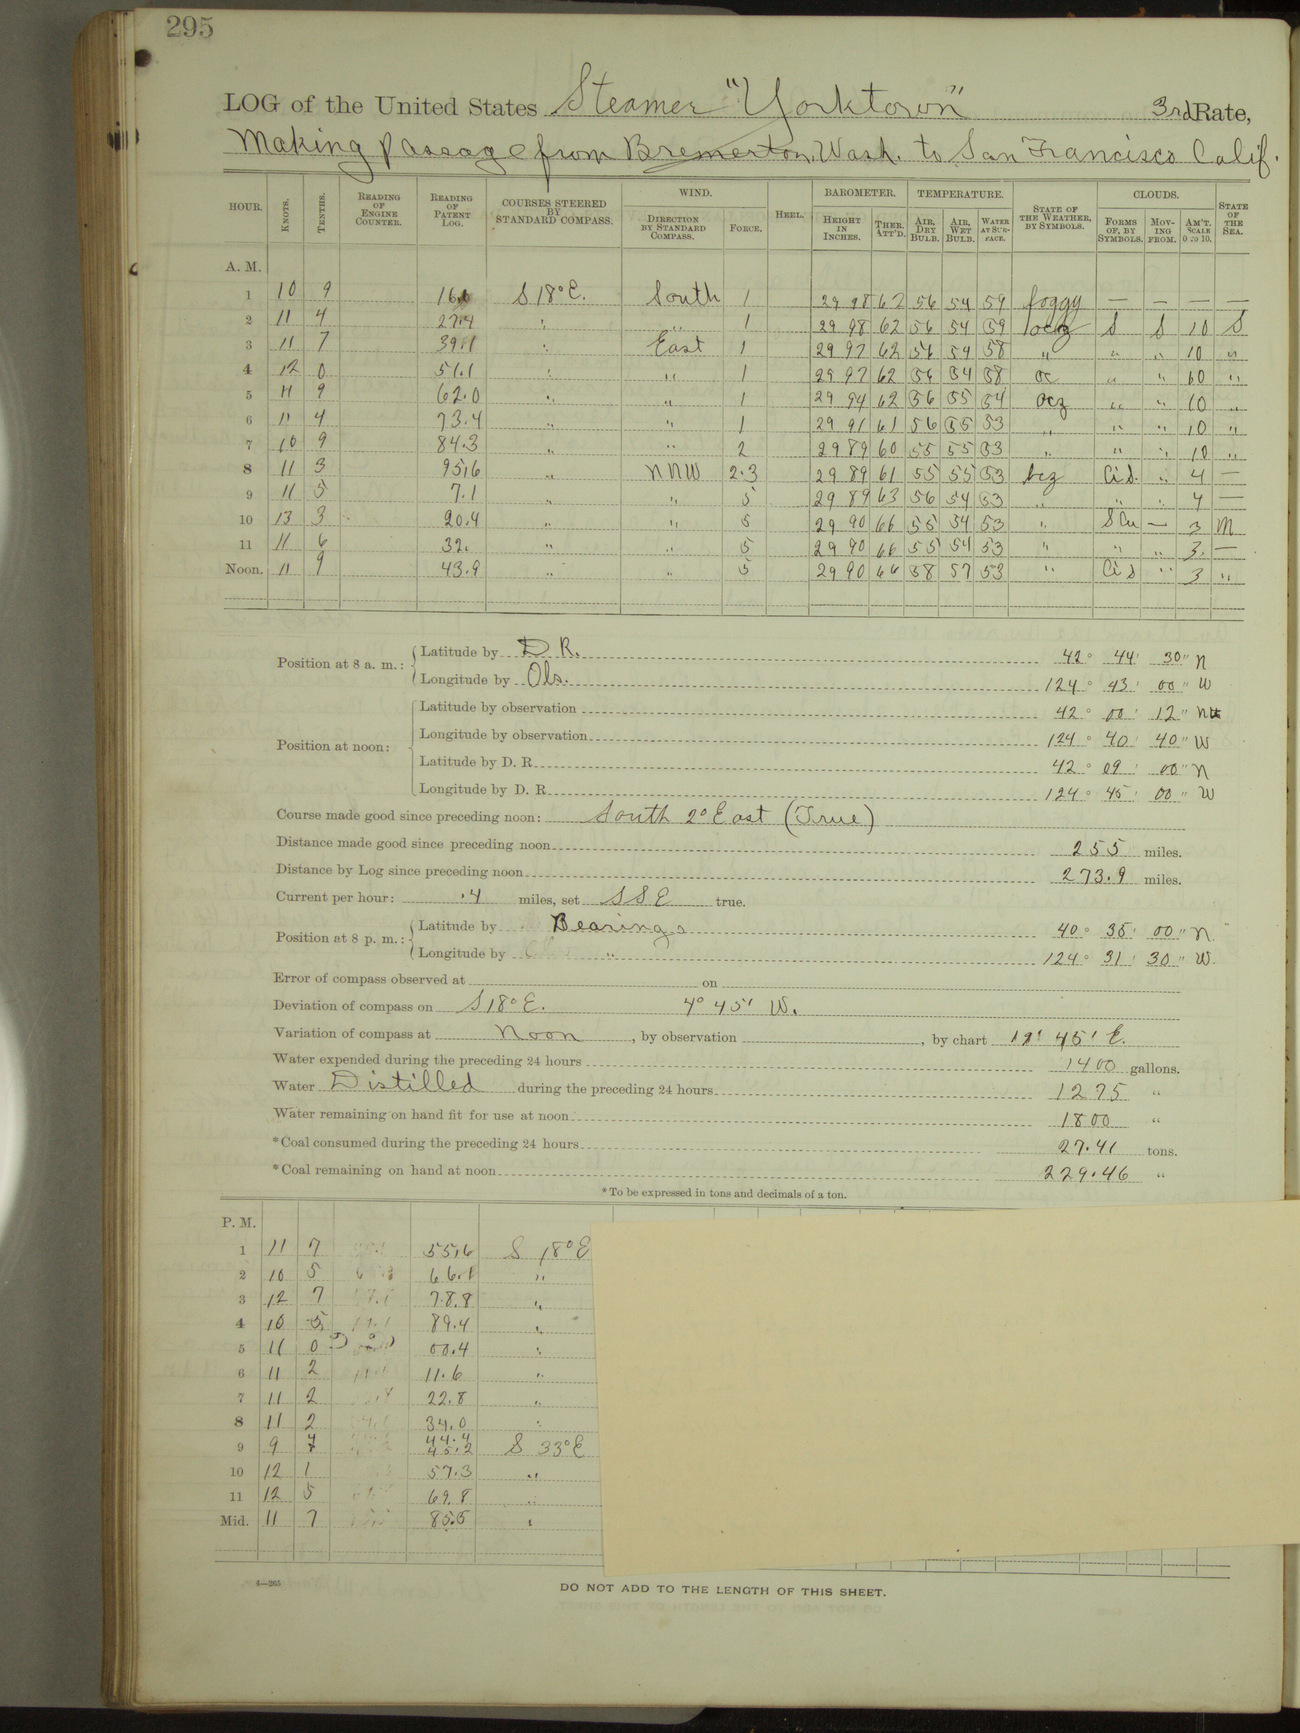 295
LOG of the United States Steamer "Yorktown" 3rd Rate,
Making passage from Bremerton, Wash. to San Francisco Calif.
HOUR. KNOTS. TENTHS. READING OF ENGINE COUNTER. READING OF PATENT LOG. COURSES STEERED BY STANDARD COMPASS. WIND. DIRECTION BY STANDARD COMPASS. FORCE. HEEL. BAROMETER. HEIGHT IN INCHES. THER. ATT'D. TEMPERATURE. AIR, DRY BULB. AIR, WET BULB. WATER AT SURFACE. STATE OF THE WEATHER, BY SYMBOLS. CLOUDS. FORMS OF, BY SYMBOLS. MOVING FROM. AM'T. SCALE 0 TO 10. STATE OF THE SEA.
A. M.
1 10 9 16.0 S 18° E. South 1 29 98 62 56 54 59 foggy — — — —
2 11 4 27.4 " " 1 29 98 62 56 54 59 ocz S S 10 S
3 11 7 39.1 " East 1 29 97 62 56 54 58 " " " 10 "
4 12 0 51.1 " " 1 29 97 62 56 54 58 oc " " 10 "
5 11 9 62.0 " " 1 29 94 62 56 55 54 ocz " " 10 "
6 11 4 73.4 " " 1 29 91 61 56 55 53 " " " 10 "
7 10 9 84.3 " " 2 29 89 60 55 55 53 " " " 10 "
8 11 3 95.6 " NNW 2-3 29 89 61 55 55 53 bcz Ci S. " 4 —
9 11 5 7.1 " " 5 29 89 63 56 54 53 " " " 4 —
10 13 3 20.4 " " 5 29 90 66 55 54 53 " S Cu — 3 M
11 11 6 32. " " 5 29 90 66 55 54 53 " " " 3. —
Noon. 11 9 43.9 " " 5 29 90 66 58 57 53 " Ci S " 3 "
Position at 8 a. m.: Latitude by D. R. 42° 44' 30" N
Longitude by Obs. 124° 43' 00" W
Position at noon: Latitude by observation 42° 00' 12" N
Longitude by observation 124° 40' 40" W
Latitude by D. R. 42° 09' 00" N
Longitude by D. R. 124° 45' 00" W
Course made good since preceding noon: South 2° East (True)
Distance made good since preceding noon 255 miles.
Distance by Log since preceding noon 273.9 miles.
Current per hour: .4 miles, set SSE true.
Position at 8 p. m.: Latitude by Bearings 40° 35' 00" N.
Longitude by " 124° 31' 30" W.
Error of compass observed at on
Deviation of compass on S 18° E. 4° 45' W.
Variation of compass at Noon, by observation , by chart 19° 45' E.
Water expended during the preceding 24 hours 1400 gallons.
Water Distilled during the preceding 24 hours 1275 "
Water remaining on hand fit for use at noon 1800 "
*Coal consumed during the preceding 24 hours 27.41 tons.
*Coal remaining on hand at noon 229.46 "
*To be expressed in tons and decimals of a ton.
P. M.
1 11 7 55.6 S 18° E
2 10 5 66.1 "
3 12 7 78.8 "
4 10 5 89.4 "
5 11 0 00.4 "
6 11 2 11.6 "
7 11 2 22.8 "
8 11 2 34.0 "
9 9 7 45.2 S 33° E
10 12 1 57.3 "
11 12 5 69.8 "
Mid. 11 7 85.5 "
4—265
DO NOT ADD TO THE LENGTH OF THIS SHEET.